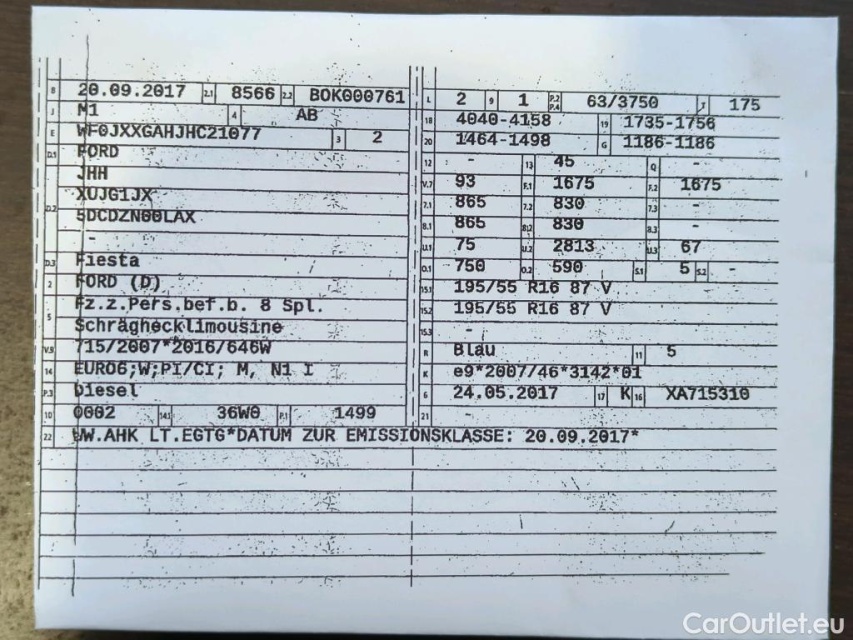 B 20.09.2017 2.1 8566 2.2 BOK000761
J M1 4 AB
E WF0JXXGAHJHC21077 3 2
D.1 FORD
JHH
XUJG1JX
D.2 5DCDZN00LAX
-
D.3 Fiesta
2 FORD (D)
5 Fz.z.Pers.bef.b. 8 Spl.
Schräghecklimousine
V.9 715/2007*2016/646W
14 EURO6;W;PI/CI; M, N1 I
P.3 Diesel
10 0002 14.1 36W0 P.1 1499
L 2 9 1 P.2 P.4 63/3750 T 175
18 4040-4158 19 1735-1756
20 1464-1498 G 1186-1186
12 - 13 45 Q -
V.7 93 F.1 1675 F.2 1675
7.1 865 7.2 830 7.3 -
8.1 865 8.2 830 8.3 -
U.1 75 U.2 2813 U.3 67
O.1 750 O.2 590 S.1 5 S.2 -
15.1 195/55 R16 87 V
15.2 195/55 R16 87 V
15.3 -
R Blau 11 5
K e9*2007/46*3142*01
6 24.05.2017 17 K 16 XA715310
21 -
22 WW.AHK LT.EGTG*DATUM ZUR EMISSIONSKLASSE: 20.09.2017*
CarOutlet.eu